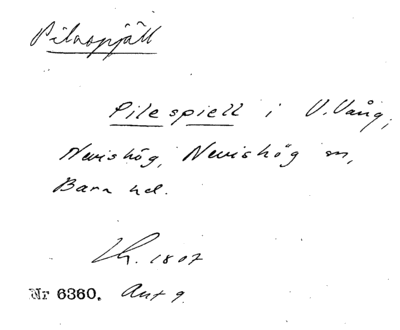 Pilaspjäll
Pilespiell i V. Vång,
Nevishög, Nevishög sn,
Bara hd.
Lh. 1807
Nr 6360. Aut 9.